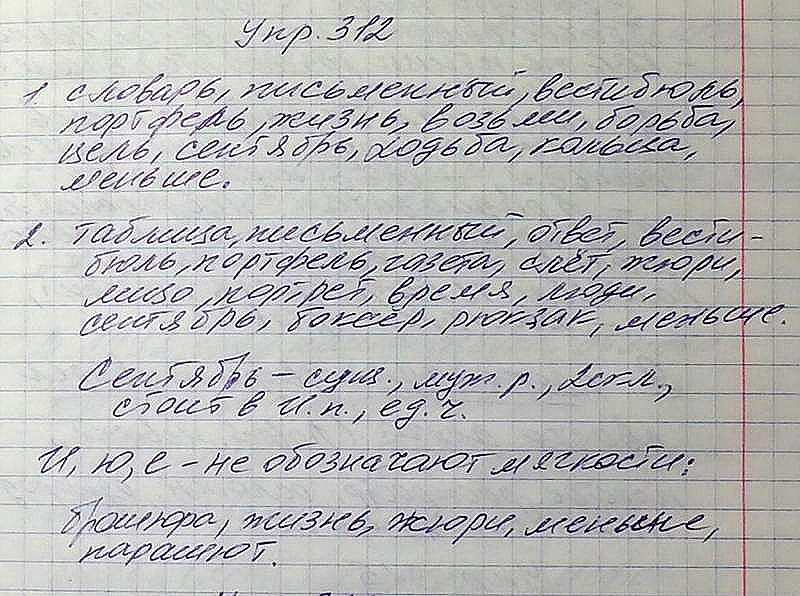 Упр. 312
1. словарь, письменный, вестибюль,
портфель, жизнь, возьми, борьба,
цель, сентябрь, ходьба, кольца,
меньше.
2. таблица, письменный, ответ, вести-
бюль, портфель, газета, слёт, жюри,
лицо, портрет, время, люди,
сентябрь, боксёр, рюкзак, меньше.
Сентябрь – сущ., муж. р., 2 скл.,
стоит в И. п., ед. ч.
И, ю, е – не обозначают мягкости:
брошюра, жизнь, жюри, меньше,
парашют.